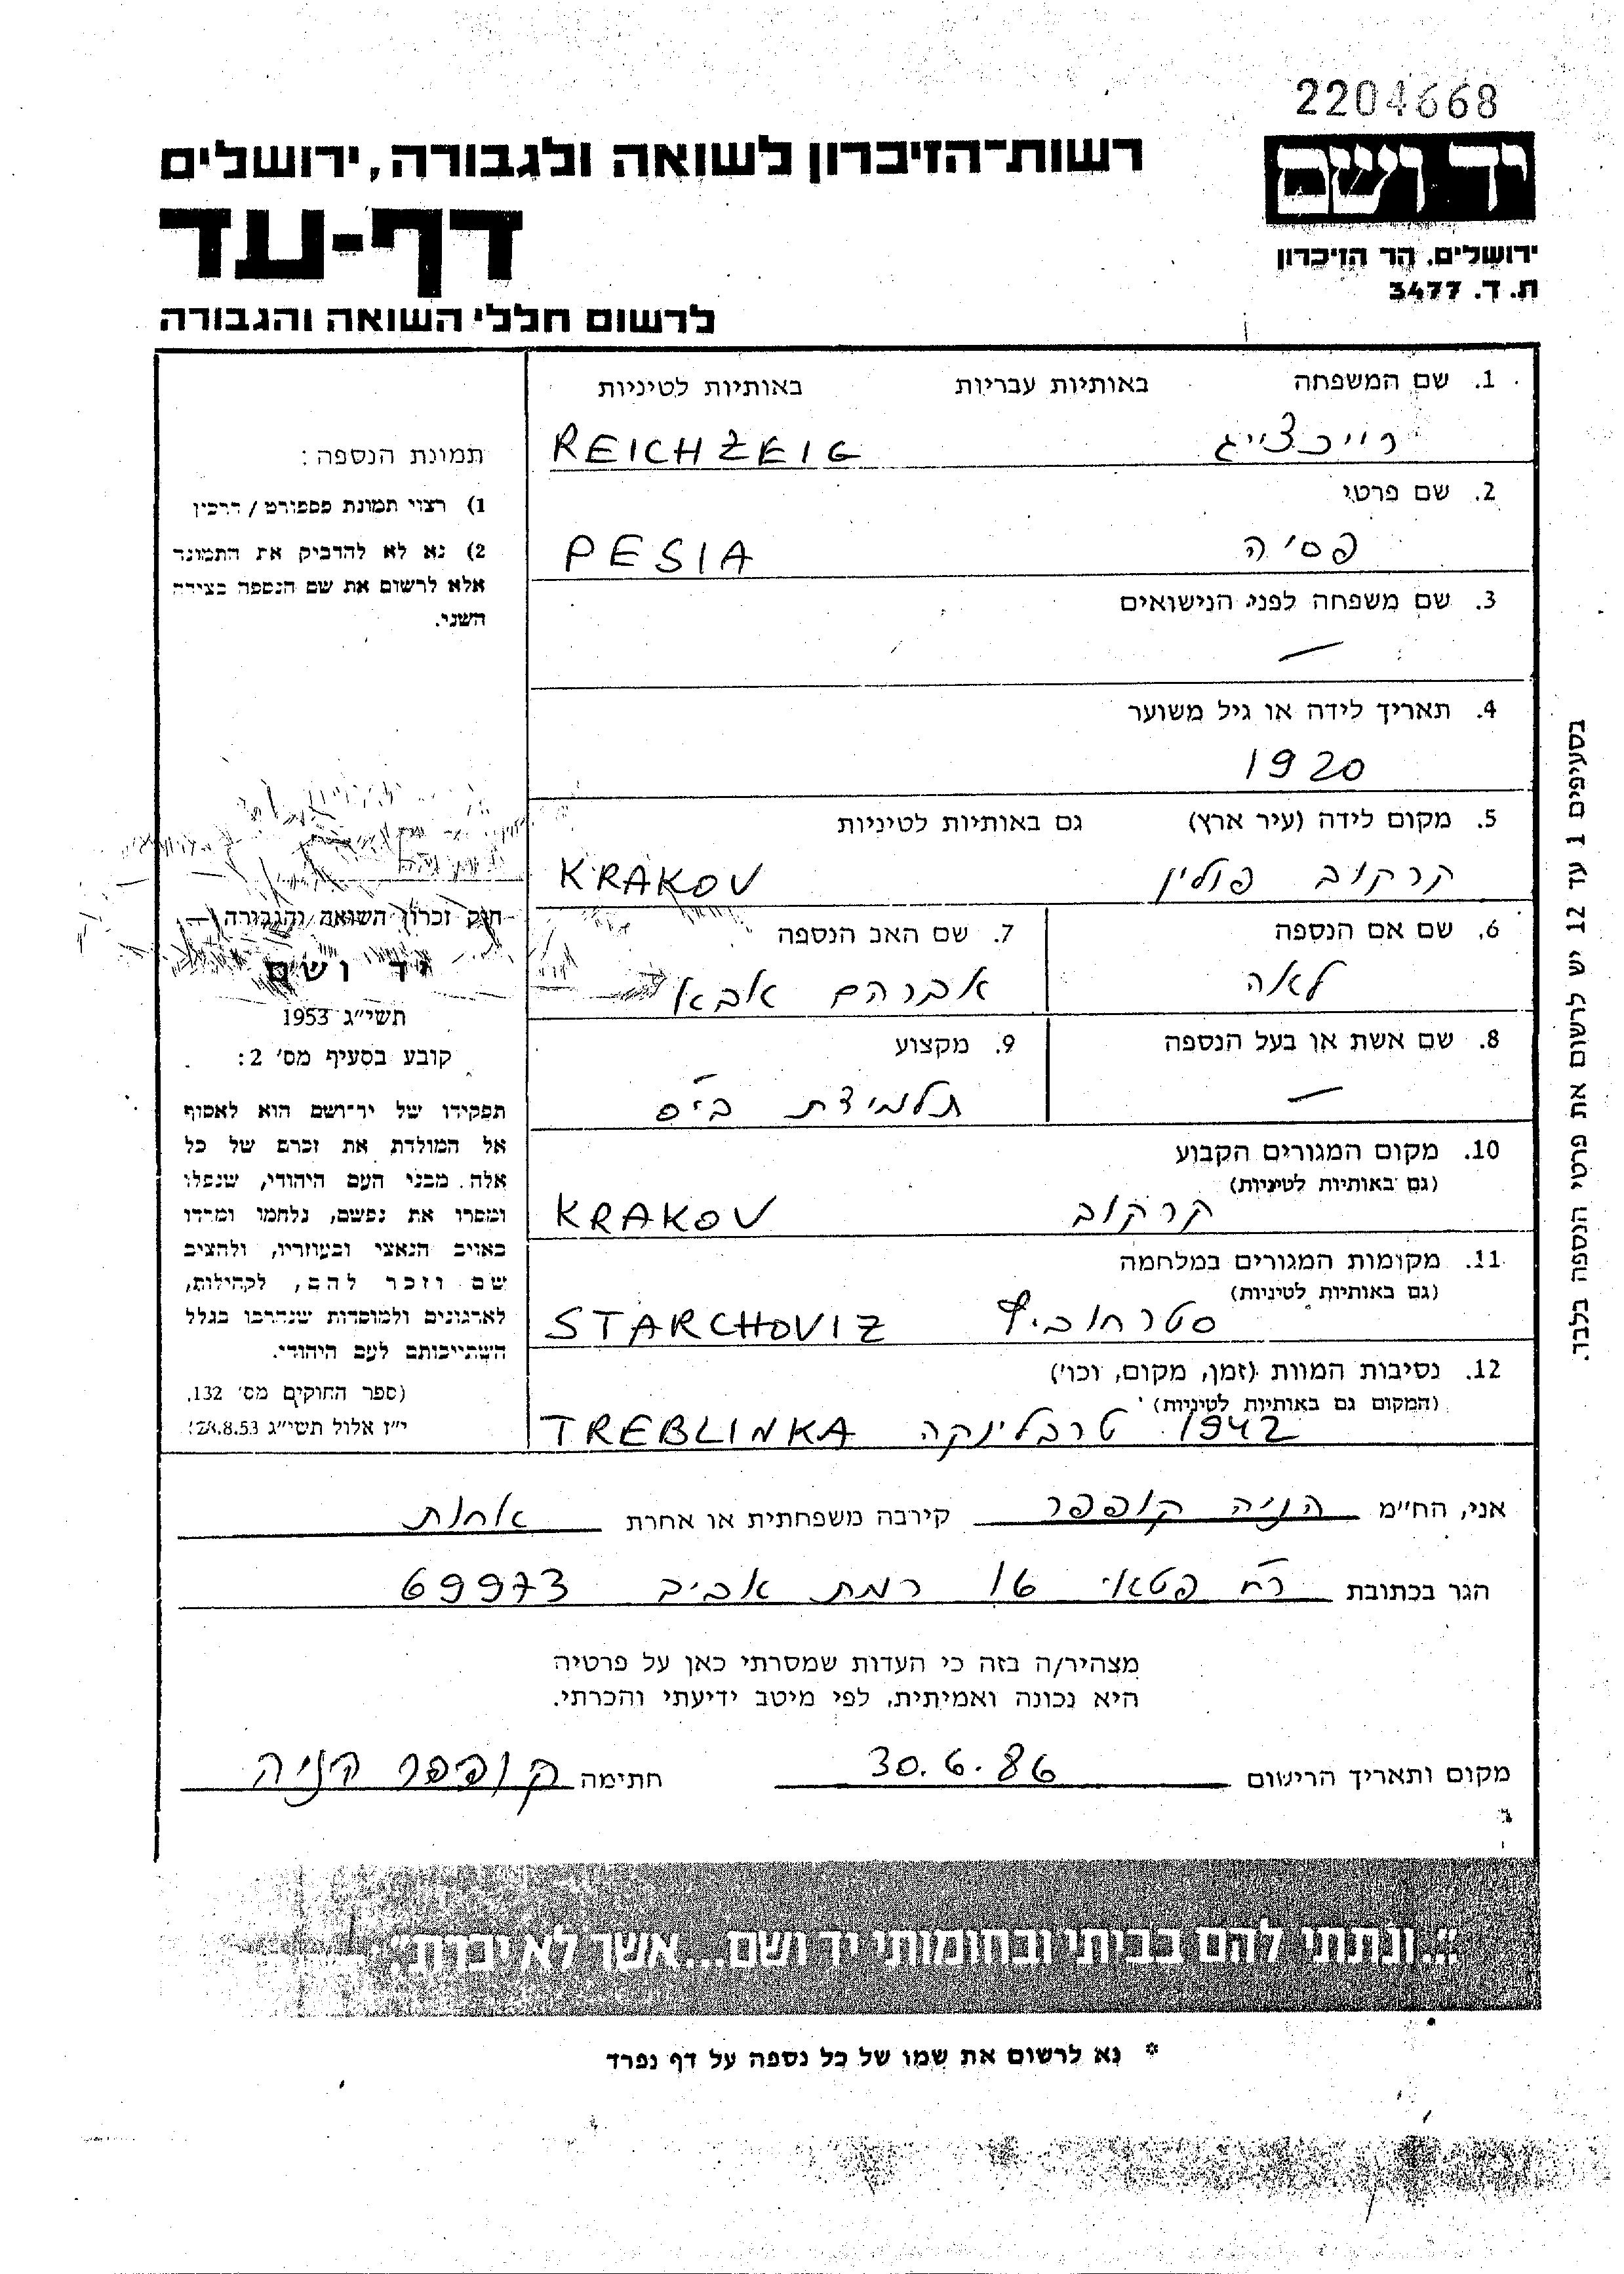 2204668
יד ושם
רשות־הזיכרון לשואה ולגבורה, ירושלים
דף-עד
ירושלים, הר הזיכרון
ת. ד. 3477
לרשום חללי השואה והגבורה
1. שם המשפחה באותיות עבריות באותיות לטיניות
רייכצייג REICHZEIG
2. שם פרטי
פסיה PESIA
3. שם משפחה לפני הנישואים
—
4. תאריך לידה או גיל משוער
1920
5. מקום לידה (עיר ארץ) גם באותיות לטיניות
קרקוב פולין KRAKOV
6. שם אם הנספה 7. שם האב הנספה
לאה אברהם אבא
8. שם אשת או בעל הנספה 9. מקצוע
— תלמידת בי״ס
10. מקום המגורים הקבוע
(גם באותיות לטיניות)
קרקוב KRAKOV
11. מקומות המגורים במלחמה
(גם באותיות לטיניות)
סטרחוביץ STARCHOVIZ
12. נסיבות המוות (זמן, מקום, וכו')
(המקום גם באותיות לטיניות)
1942 טרבלינקה TREBLINKA
תמונת הנספה:
1) רצוי תמונת פספורט / דרכון
2) נא לא להדביק את התמונה
אלא לרשום את שם הנספה בצידה
השני.
חוק זכרון השואה והגבורה —
יד ושם
תשי״ג 1953
קובע בסעיף מס' 2:
תפקידו של יד־ושם הוא לאסוף
אל המולדת את זכרם של כל
אלה מבני העם היהודי, שנפלו
ומסרו את נפשם, נלחמו ומרדו
באויב הנאצי ובעוזריו, ולהציב
שם וזכר להם, לקהילות,
לארגונים ולמוסדות שנחרבו בגלל
השתייכותם לעם היהודי.
(ספר החוקים מס' 132,
י״ז אלול תשי״ג 28.8.53)
בסעיפים 1 עד 12 יש לרשום את פרטי הנספה בלבד.
אני, הח״מ הניה קופפר קירבה משפחתית או אחרת אחות
הגר בכתובת רח׳ פטאי 16 רמת אביב 69973
מצהיר/ה בזה כי העדות שמסרתי כאן על פרטיה
היא נכונה ואמיתית, לפי מיטב ידיעתי והכרתי.
מקום ותאריך הרישום 30.6.86 חתימה קופפר הניה
״..ונתתי להם בביתי ובחומותי יד ושם...אשר לא יכרת״.
* נא לרשום את שמו של כל נספה על דף נפרד